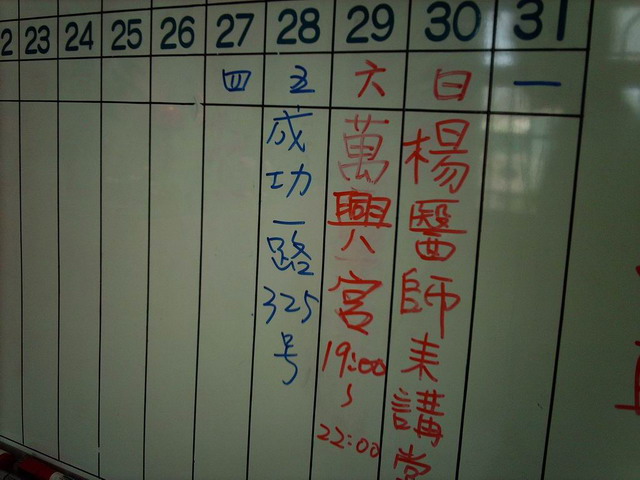 2 23 24 25 26 27 28 29 30 31
四 五 六 日 一
成功一路325号
萬興宮19:00~22:00
楊醫師來講堂